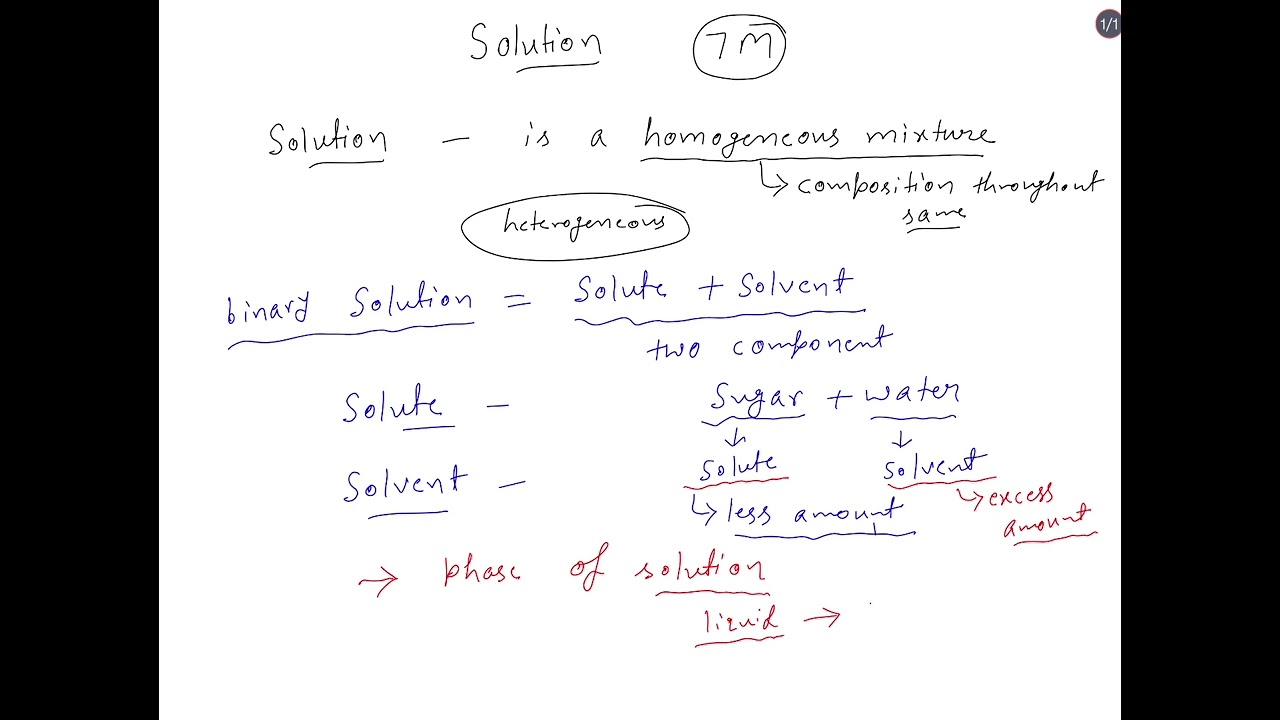 1/1
Solution 7M
Solution - is a homogeneous mixture
↳ composition throughout
same
heterogeneous
binary Solution = Solute + Solvent
two component
Solute - Sugar + water
↓ ↓
Solute solvent
Solvent - ↳ less amount ↳ excess
amount
→ phase of solution
liquid →